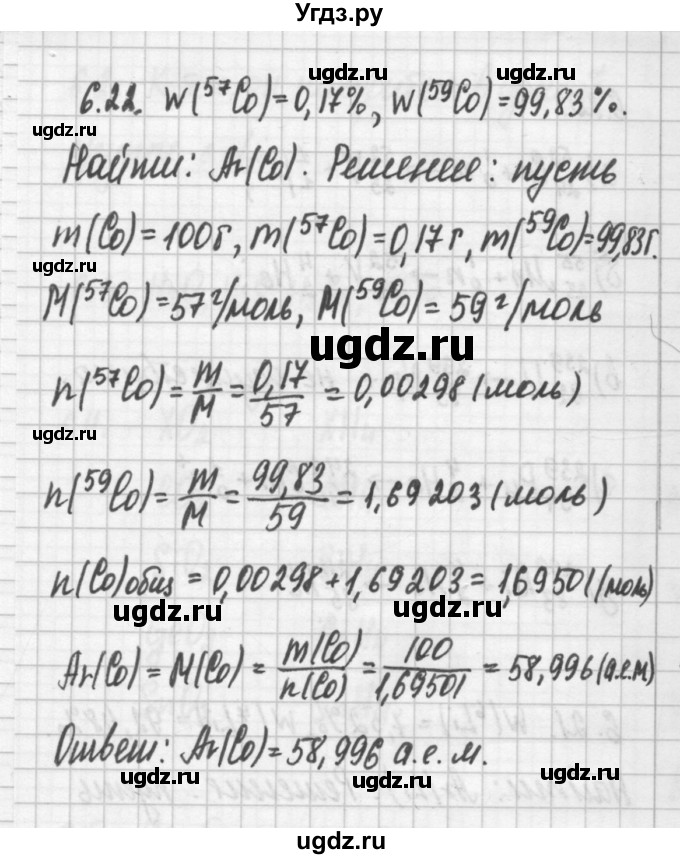 Угдз.ру
ugdz.ru
6.22. w(⁵⁷Co)=0,17%, w(⁵⁹Co)=99,83%.
ugdz.ru ugdz.ru
Найти: Ar(Co). Решение: пусть
ugdz.ru ugdz.ru
m(Co)=100г, m(⁵⁷Co)=0,17г, m(⁵⁹Co)=99,83г.
ugdz.ru
M(⁵⁷Co)=57г/моль, M(⁵⁹Co)=59г/моль
ugdz.ru
n(⁵⁷Co)=m/M=0,17/57=0,00298(моль)
ugdz.ru
n(⁵⁹Co)=m/M=99,83/59=1,69203(моль)
ugdz.ru
n(Co)общ=0,00298+1,69203=1,69501(моль)
ugdz.ru ugdz.ru
Ar(Co)=M(Co)=m(Co)/n(Co)=100/1,69501=58,996(а.е.м)
ugdz.ru
Ответ: Ar(Co)=58,996 а.е.м.
ugdz.ru ugdz.ru
ugdz.ru ugdz.ru